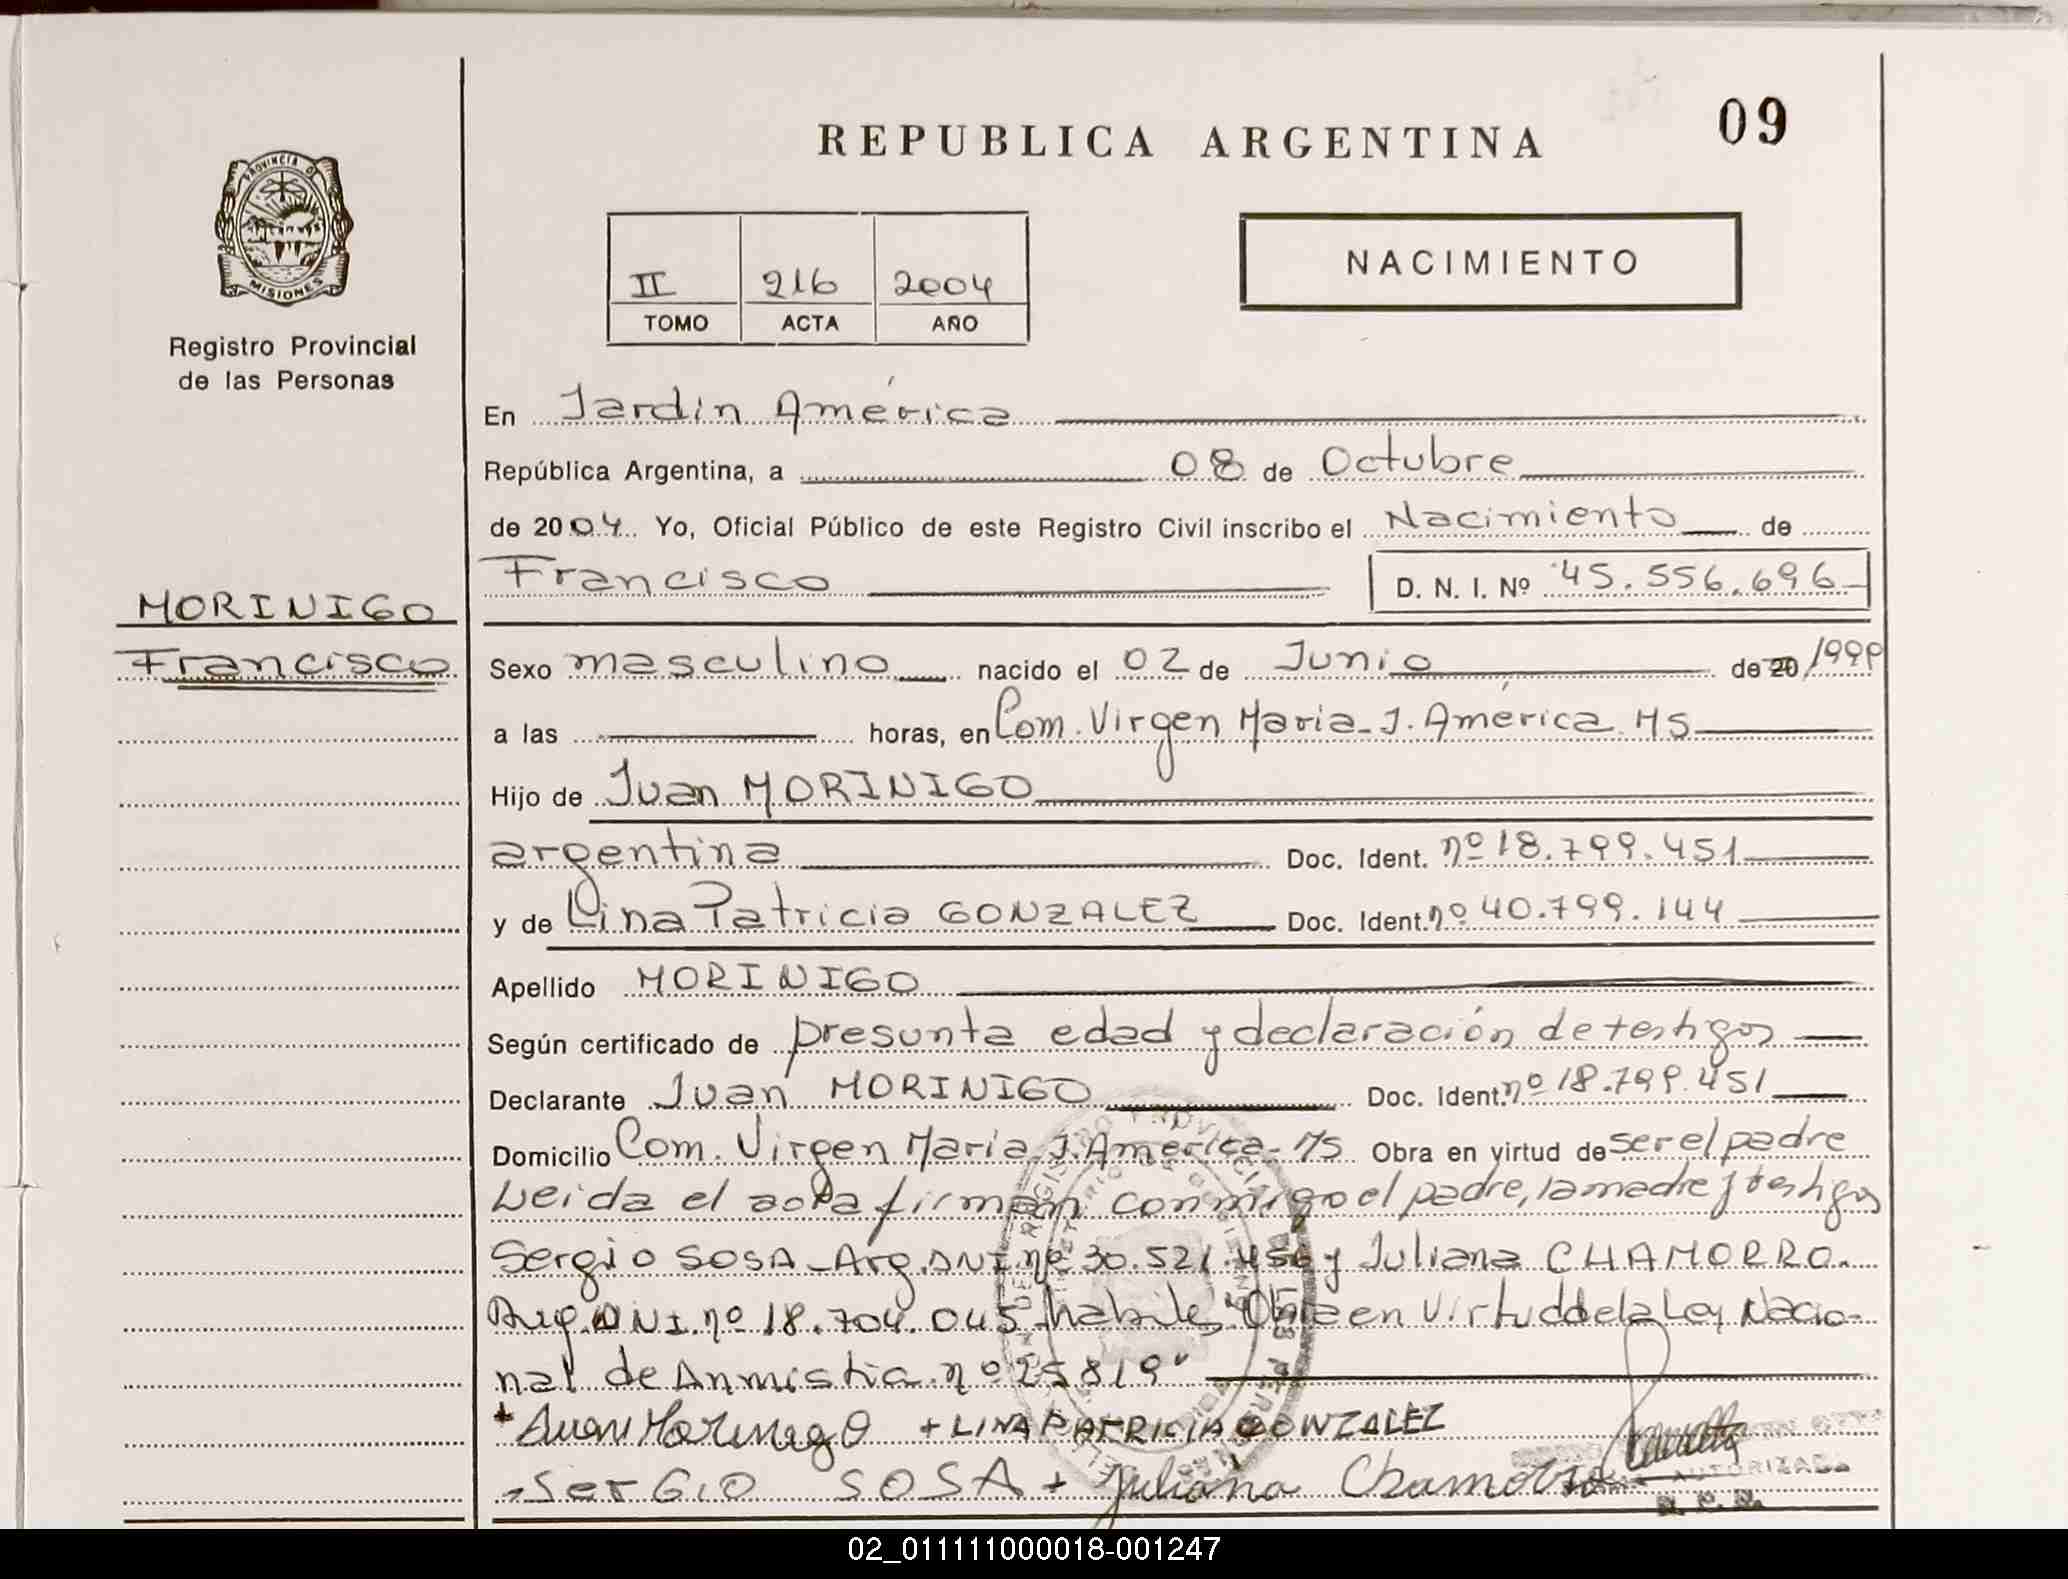 REPUBLICA ARGENTINA
09
PROVINCIA DE
MISIONES
Registro Provincial
de las Personas
II 216 2004
TOMO ACTA AÑO
NACIMIENTO
En Jardin América
República Argentina, a 08 de Octubre
de 2004. Yo, Oficial Público de este Registro Civil inscribo el Nacimiento de
Francisco D. N. I. Nº 45.556.696
MORINIGO
Francisco
Sexo masculino nacido el 02 de Junio de 20 1999
a las horas, en Com. Virgen Maria - J. América MS
Hijo de Juan MORINIGO
argentina Doc. Ident. nº 18.799.451
y de Lina Patricia GONZALEZ Doc. Ident. nº 40.799.144
Apellido MORINIGO
Según certificado de presunta edad y declaración de testigos
Declarante Juan MORINIGO Doc. Ident. nº 18.799.451
Domicilio Com. Virgen Maria J. America - MS Obra en virtud de ser el padre
Leida el acta firman conmigo el padre, la madre y testigos
Sergio SOSA - Arg. DNI nº 30.521.456 y Juliana CHAMORRO.
Arg. DNI. nº 18.704.045 habiles "Obra en Virtud de la Ley Nacio-
nal de Anmistia nº 25819"
+ Juan Morinigo + LINA PATRICIA GONZALEZ
SerGio SOSA + Juliana Chamorro
AUTORIZADA
02_011111000018-001247